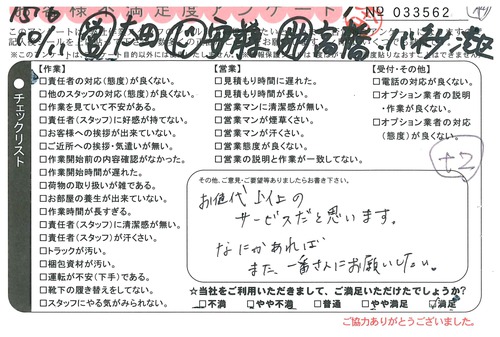 客様不満足度アンケート
No 033562
【作業】
□責任者の対応(態度)が良くない。
□他のスタッフの対応(態度)が良くない。
□作業を見ていて不安がある。
□責任者(スタッフ)に好感が持てない。
□お客様への挨拶が出来ていない。
□ご近所への挨拶・気遣いが無い。
□作業開始前の内容確認がなかった。
□作業開始時間が遅れた。
□荷物の取り扱いが雑である。
□お部屋の養生が出来ていない。
□作業時間が長すぎる。
□責任者(スタッフ)に清潔感が無い。
□責任者(スタッフ)が汗くさい。
□トラックが汚い。
□梱包資材が汚い。
□運転が不安(下手)である。
□靴下の履き替えをしてない。
□スタッフにやる気がみられない。
【営業】
□見積もり時間に遅れた。
□見積もり時間が長い。
□営業マンに清潔感が無い。
□営業マンが煙草くさい。
□営業マンが汗くさい。
□営業態度が良くない。
□営業の説明と作業が一致してない。
【受付・その他】
□電話の対応が良くない。
□オプション業者の説明
・作業が良くない。
□オプション業者の対応
(態度)が良くない。
●チェックリスト
+2
その他、ご意見・ご要望等ありましたらお書き下さい。
お値代以上の
サービスだと思います。
なにかあれば
また一番さんにお願いしたい。
☆当社をご利用いただきまして、ご満足いただけたでしょうか?
□不満 □やや不満 □普通 □やや満足 ☑満足
ご協力ありがとうございました。